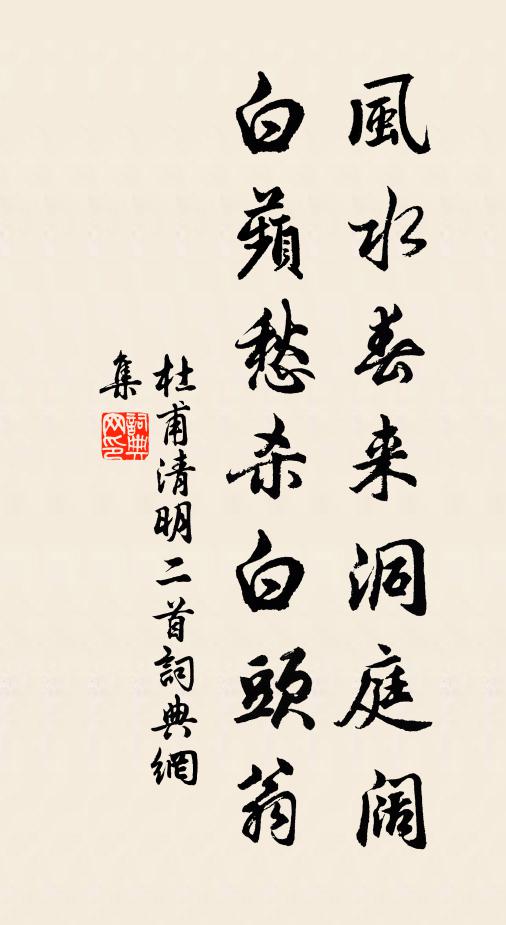 風水春来洞庭阔
白蘋愁杀白頭翁
杜甫清明二首詞典網
集
詞典
网印